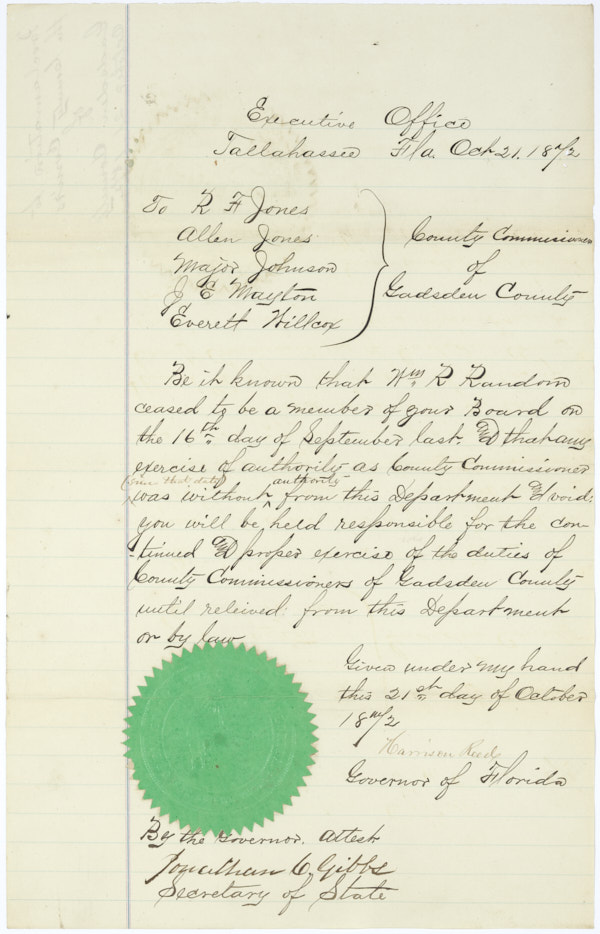 Executive Office
Tallahassee Fla. Oct 21. 1872
To R F Jones
Allen Jones
Major Johnson
J E Mayton
Everett Willcox
County Commissioners
of
Gadsden County
Be it known that Wm R Random
ceased to be a member of your Board on
the 16th day of September last. & that any
exercise of authority as County Commissioner
(since that date) authority
was without ^ from this Department & void:
you will be held responsible for the con-
-tinued & proper exercise of the duties of
County Commissioners of Gadsden County
until releived from this Department
or by law
Given under my hand
this 21st day of October
1872
Harrison Reed
Governor of Florida
By the Governor. attest
Jonathan C. Gibbs
Secretary of State